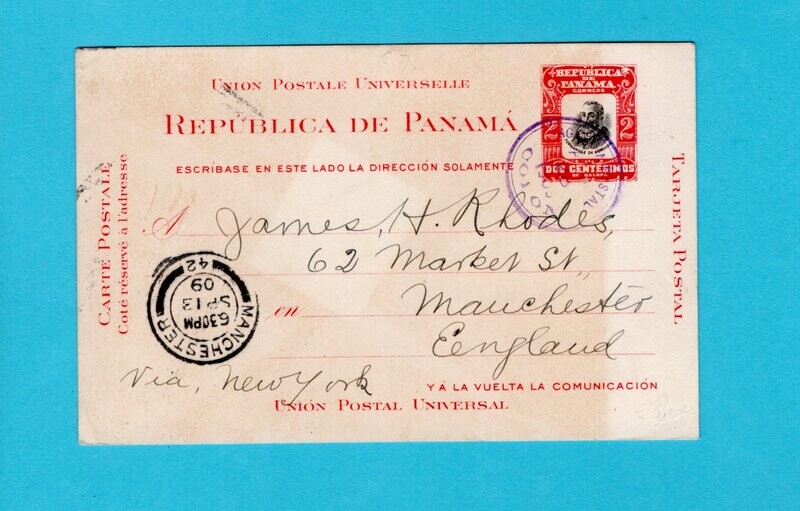 UNION POSTALE UNIVERSELLE
REPÚBLICA DE PANAMÁ
ESCRÍBASE EN ESTE LADO LA DIRECCIÓN SOLAMENTE
REPUBLICA
DE
PANAMA
CORREOS
2 2
DOS CENTÉSIMOS
DE BALBOA
POSTAL
COLON
CARTE POSTALE
Coté réservé à l'adresse
TARJETA POSTAL
A James, H. Rhodes,
62 Market St,
en Manchester
England
Via, New York
MANCHESTER
6.30PM
SP 13
09
42
Y A LA VUELTA LA COMUNICACIÓN
UNIÓN POSTAL UNIVERSAL